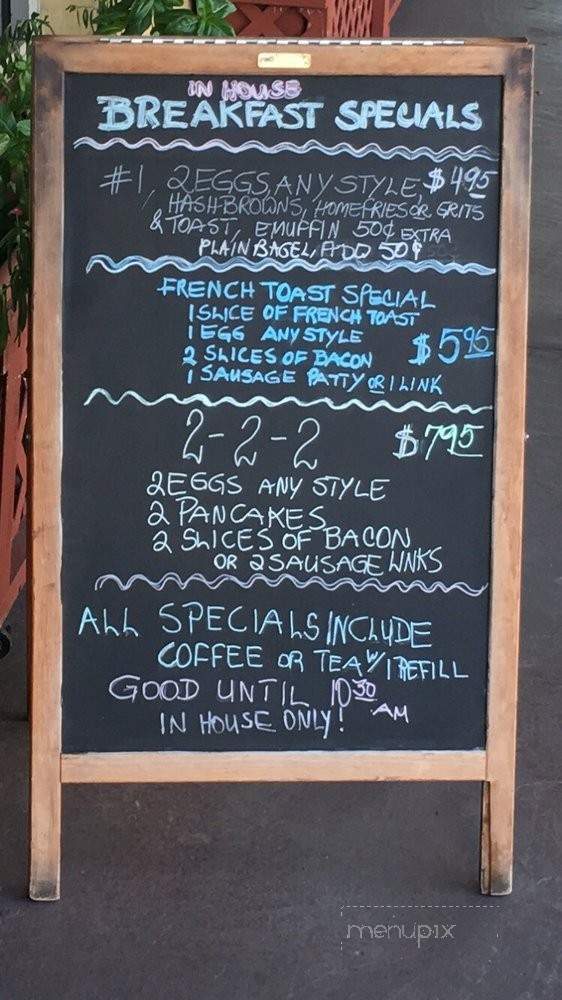 IN HOUSE
BREAKFAST SPECIALS
#1, 2 EGGS, ANY STYLE, $4.95
HASH-BROWNS, HOMEFRIES OR GRITS
& TOAST, E.MUFFIN 50¢ EXTRA
PLAIN BAGEL, ADD 50¢
FRENCH TOAST SPECIAL
1 SLICE OF FRENCH TOAST
1 EGG ANY STYLE
2 SLICES OF BACON $5.95
1 SAUSAGE PATTY OR 1 LINK
2-2-2 $7.95
2 EGGS ANY STYLE
2 PANCAKES
2 SLICES OF BACON
OR 2 SAUSAGE LINKS
ALL SPECIALS INCLUDE
COFFEE OR TEA W/ 1 REFILL
GOOD UNTIL 10 30 AM
IN HOUSE ONLY!
menupix